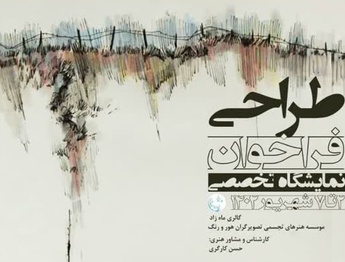 طراحی
فراخوان
نمایشگاه تخصصی
۲ تا ۷ شهریور ۱۴۰۲
گالری ماه زاد
موسسه هنرهای تجسمی تصویرگران هور و رنگ
کارشناس و مشاور هنری:
حسن کارگری